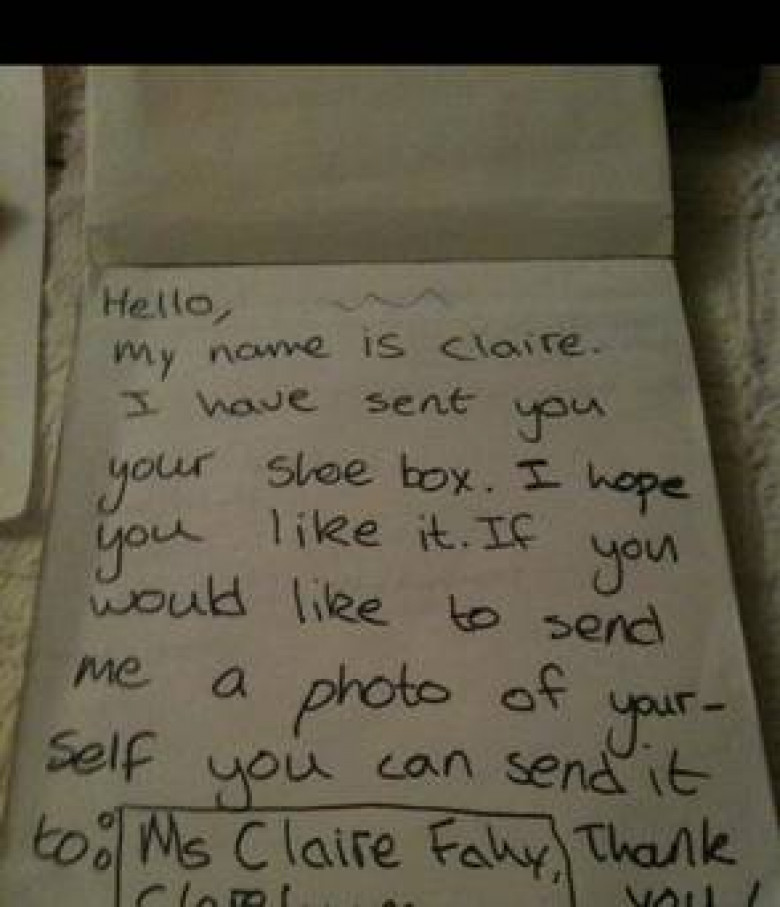 Hello,
My name is Claire.
I have sent you
your shoe box. I hope
you like it. If you
would like to send
me a photo of your-
self you can send it
to: Ms Claire Fahy, Thank
you!